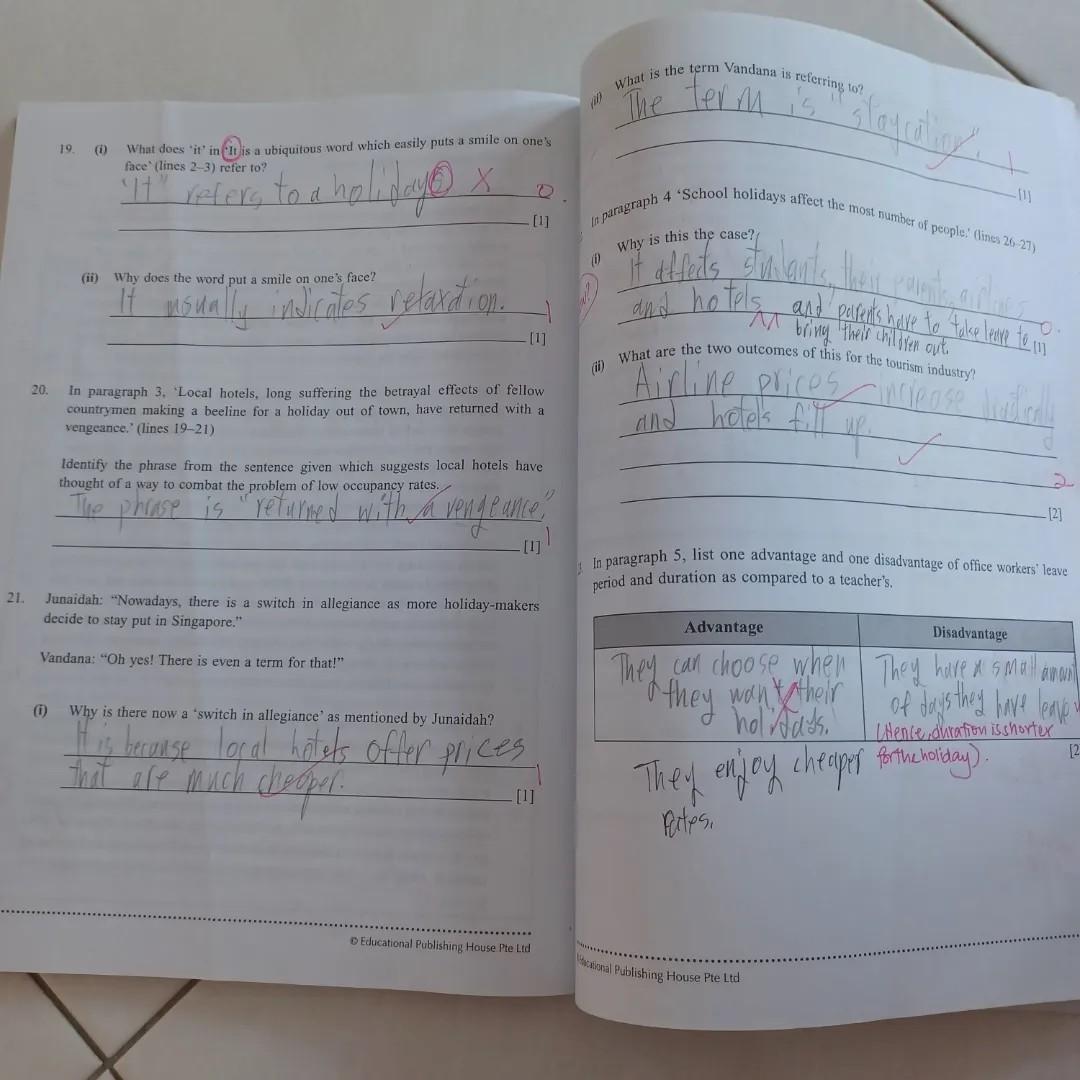 19. (i) What does 'it' in 'It is a ubiquitous word which easily puts a smile on one's
face' (lines 2–3) refer to?
"It" refers to a holiday X 0
[1]
(ii) Why does the word put a smile on one's face?
It usually indicates relaxation. 1
[1]
20. In paragraph 3, 'Local hotels, long suffering the betrayal effects of fellow
countrymen making a beeline for a holiday out of town, have returned with a
vengeance.' (lines 19–21)
Identify the phrase from the sentence given which suggests local hotels have
thought of a way to combat the problem of low occupancy rates.
The phrase is "returned with a vengeance."
[1] 1
21. Junaidah: "Nowadays, there is a switch in allegiance as more holiday-makers
decide to stay put in Singapore."
Vandana: "Oh yes! There is even a term for that!"
(i) Why is there now a 'switch in allegiance' as mentioned by Junaidah?
It is because local hotels offer prices
that are much cheaper. 1
[1]
© Educational Publishing House Pte Ltd
(ii) What is the term Vandana is referring to?
The term is "staycation". 1
[1]
In paragraph 4 'School holidays affect the most number of people.' (lines 26–27)
(i) Why is this the case?
It affects students, their parents, airlines 0
and hotels and parents have to take leave to [1]
bring their children out.
(ii) What are the two outcomes of this for the tourism industry?
Airline prices increase drastically
and hotels fill up.
2
[2]
In paragraph 5, list one advantage and one disadvantage of office workers' leave
period and duration as compared to a teacher's.
Advantage Disadvantage
They can choose when They have a small amount
they want their of days they have leave
holidays. (Hence, duration is shorter
They enjoy cheaper for the holiday). [2
rates.
Educational Publishing House Pte Ltd